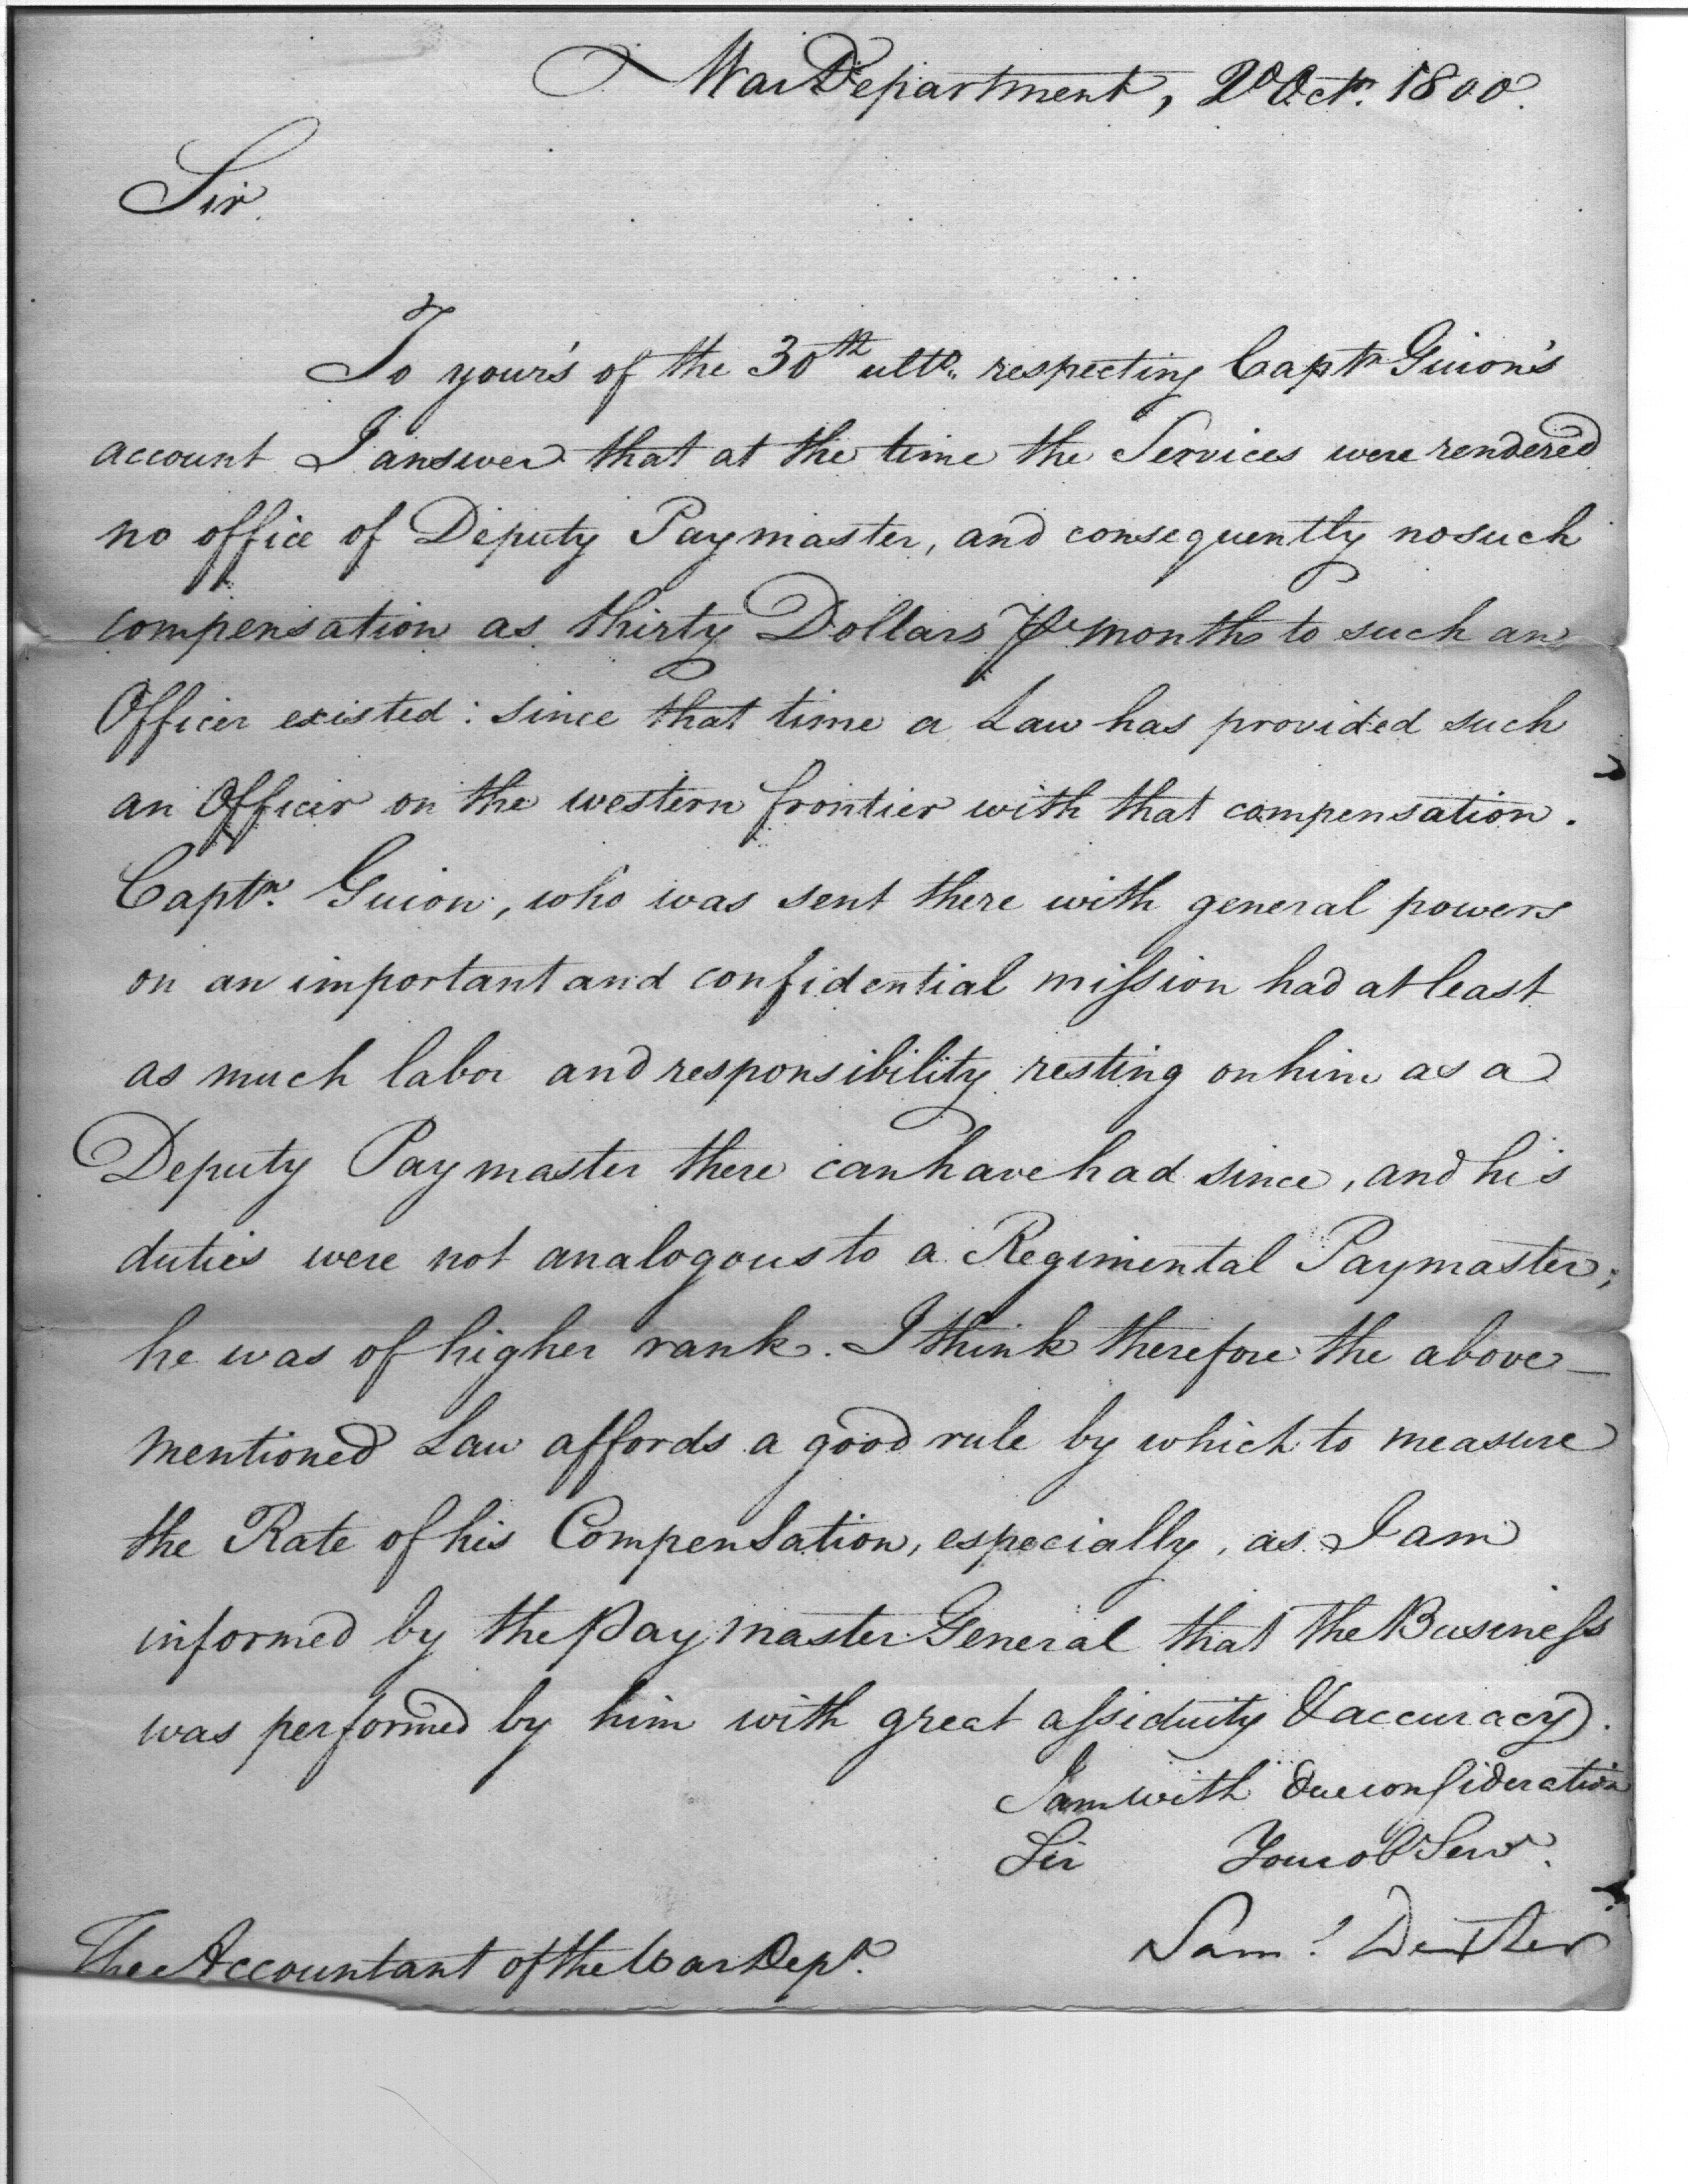 War Department, 2d Octr. 1800.
Sir.
To your's of the 30th ulto. respecting Captn Guion's
account I answer that at the time the Services were rendered
no office of Deputy Paymaster, and consequently no such
compensation as thirty Dollars ⅌ month to such an
Officer existed: since that time a Law has provided such
an Officer on the western frontier with that compensation.
Captn. Guion, who was sent there with general powers
on an important and confidential miſsion had at least
as much labor and responsibility resting on him as a
Deputy Paymaster there can have had since, and his
duties were not analogous to a Regimental Paymaster;
he was of higher rank. I think therefore the above-
mentioned Law affords a good rule by which to measure
the Rate of his Compensation, especially, as I am
informed by the Paymaster General that the Busineſs
was performed by him with great aſsiduity & accuracy.
I am with due conſideration
Sir Your ob Servt.
Saml. Dexter
The Accountant of the War Dept.